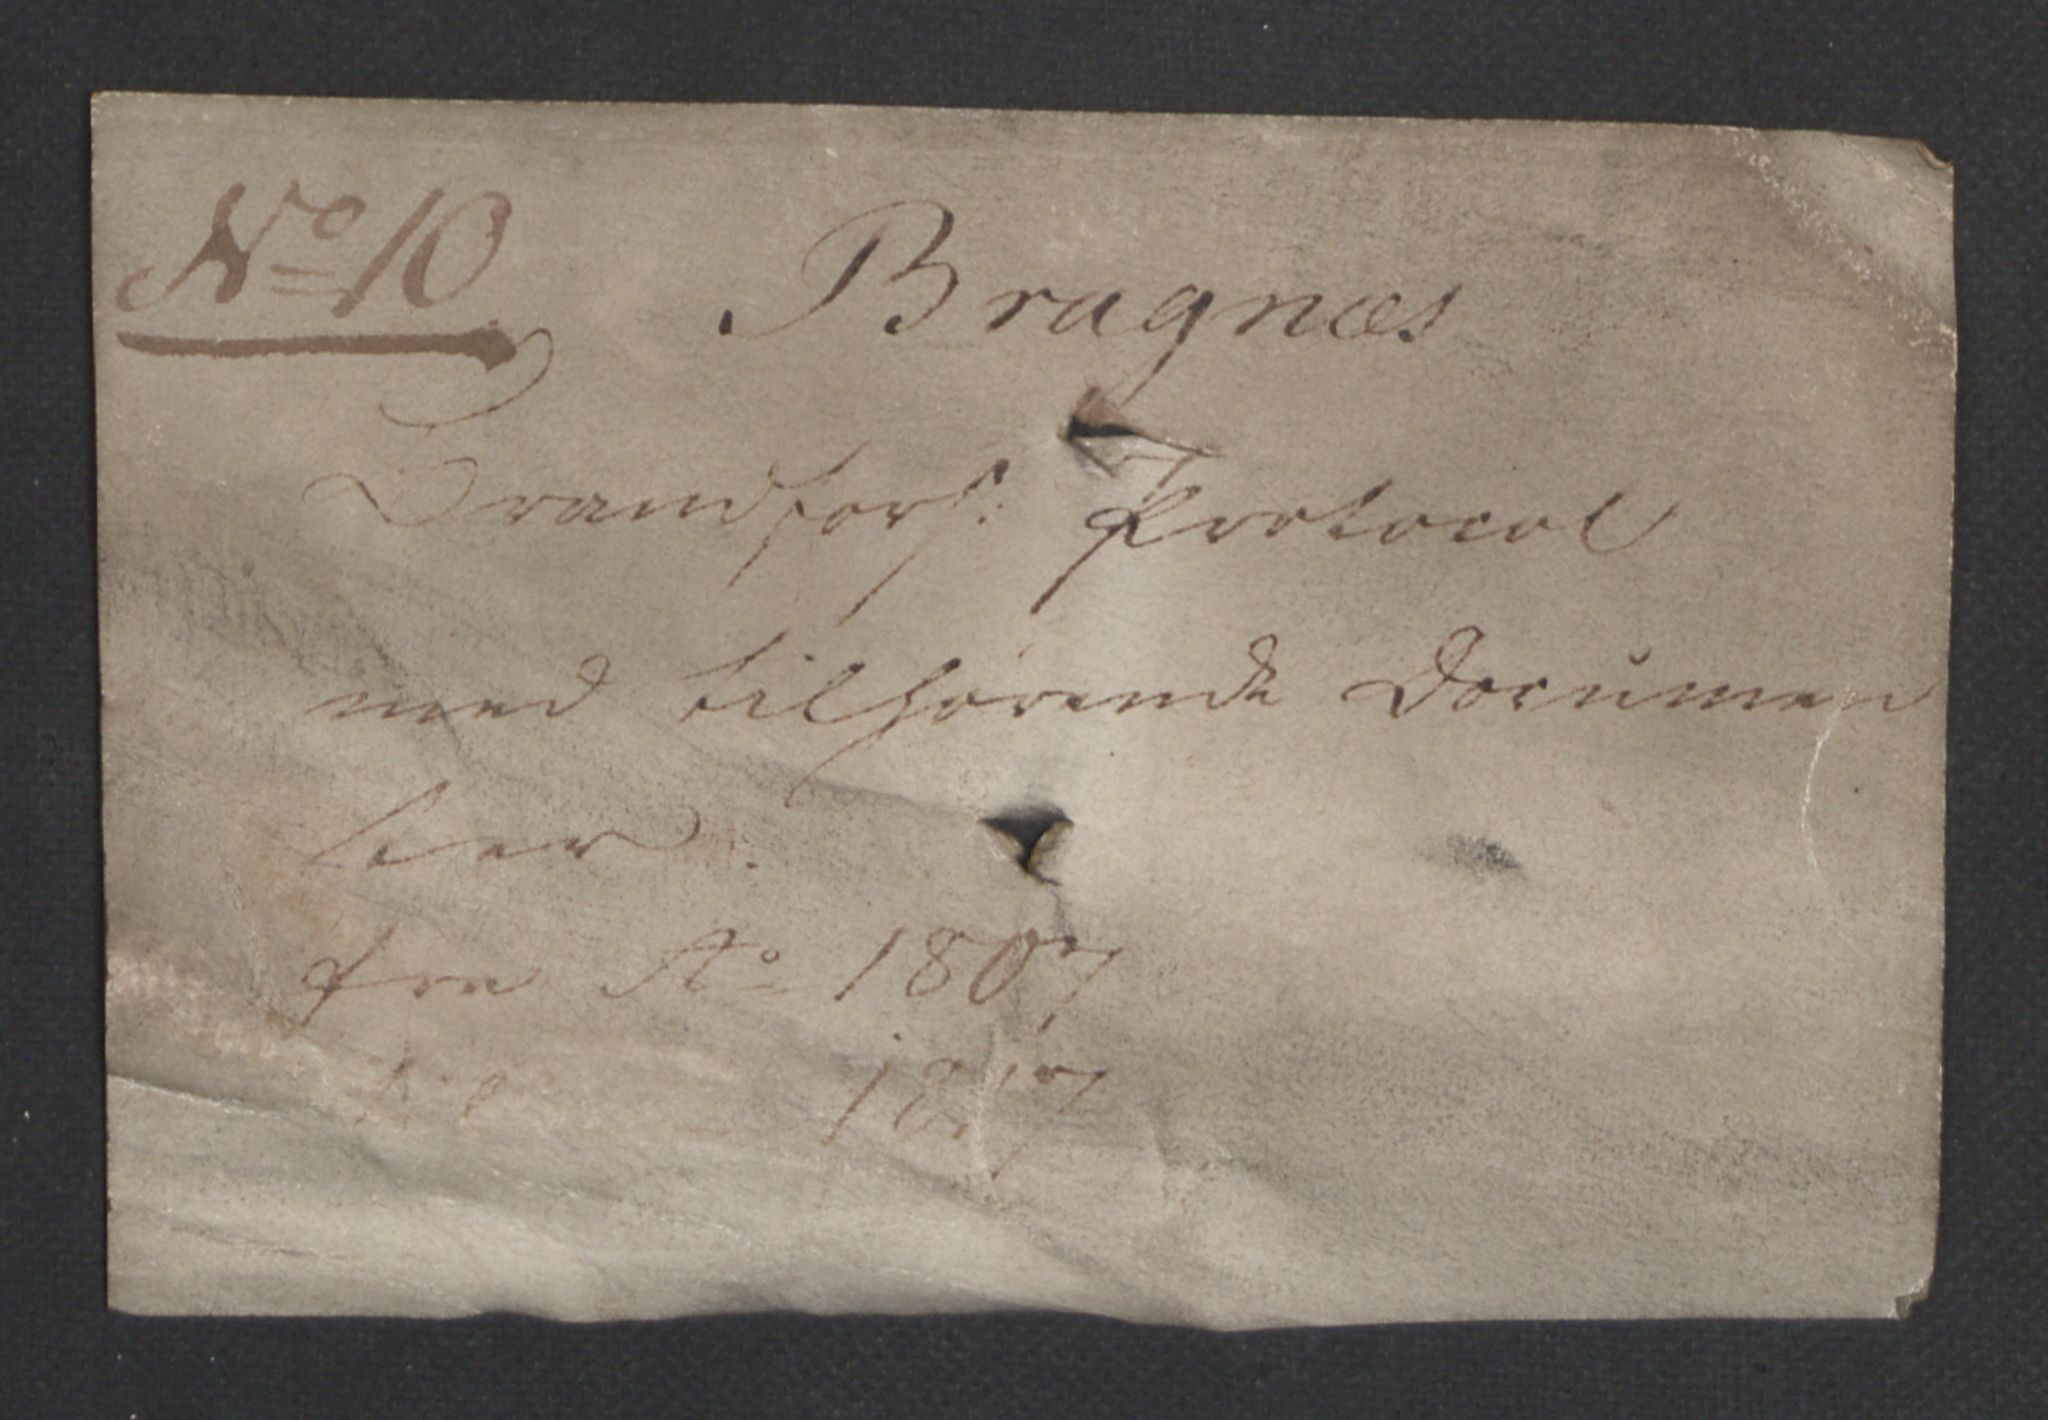 No 10
Bragnæs
Brandfors: Protocol
med tilhørende Documen
ter.
fra Ao 1807
til 1817